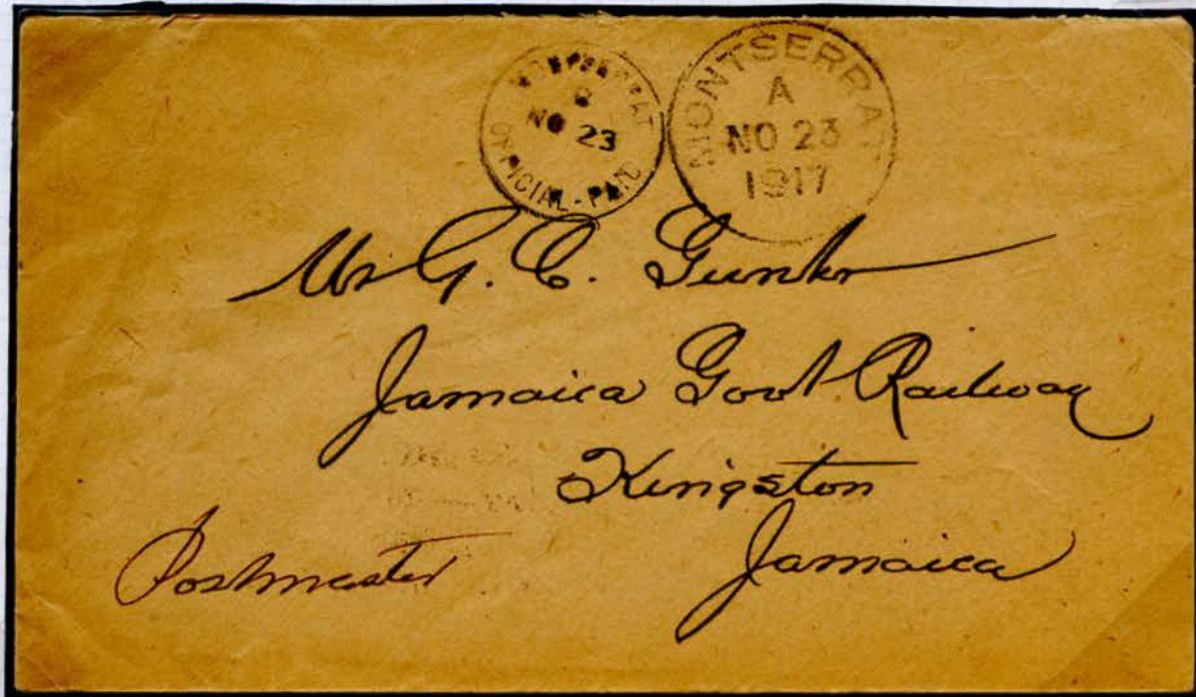 MONTSERRAT
NO 23
OFFICIAL-PAID
MONTSERRAT
A
NO 23
1917
Mr G. C. Gunter
Jamaica Govt Railway
Kingston
Jamaica
Postmaster